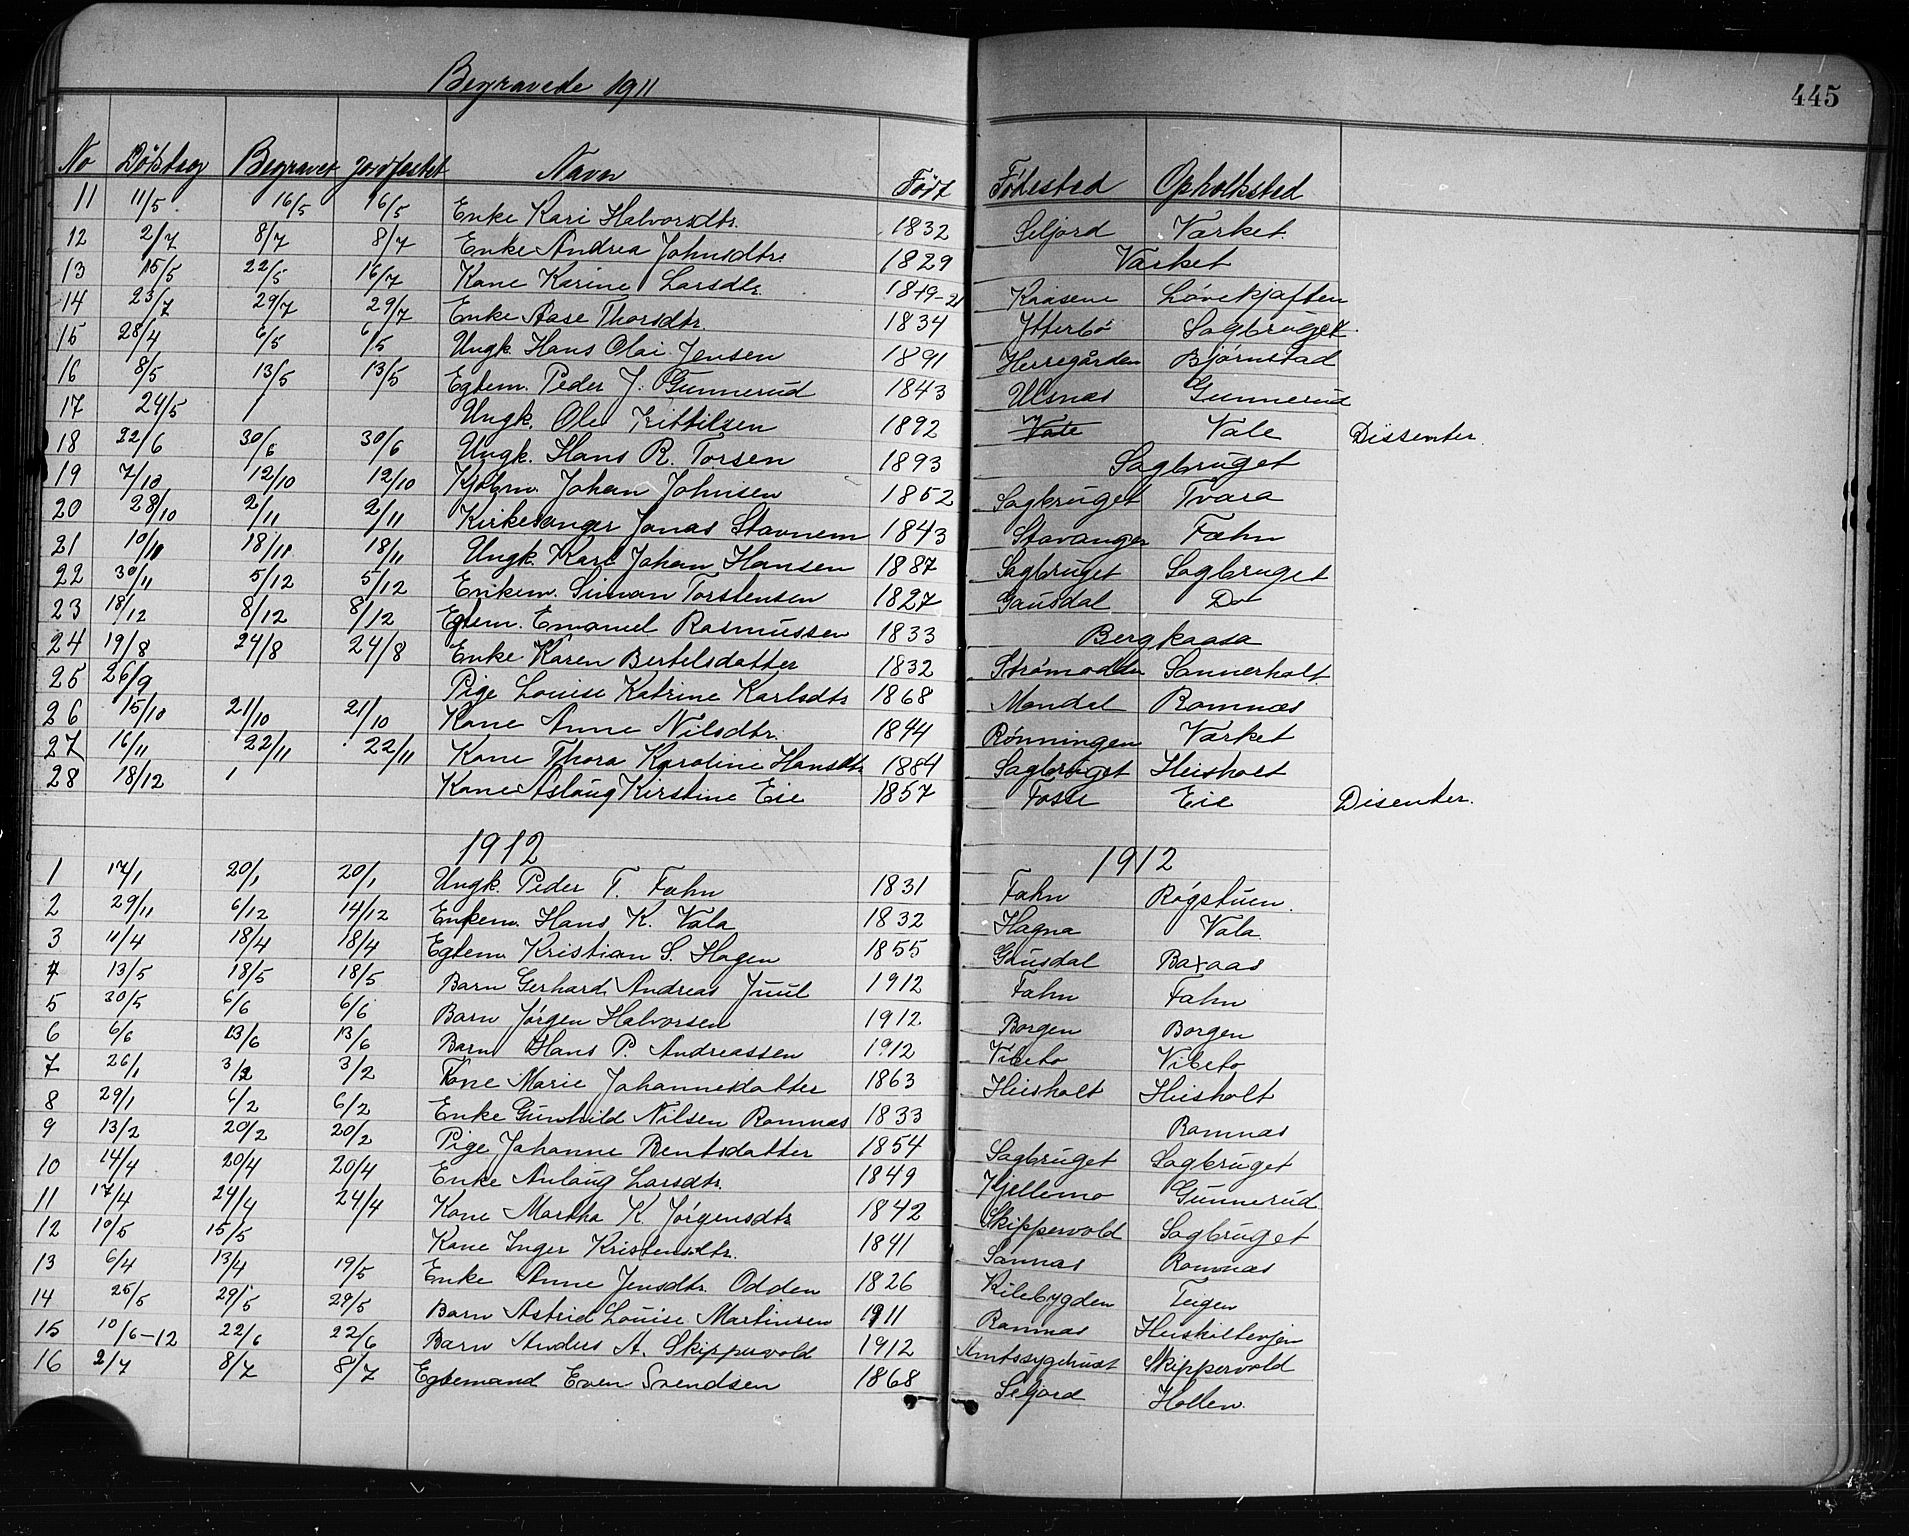 Begravede 1911
445
No Dödsdag Begravet Jordfestet Navn Født Fødested Opholdssted
11 11/5 16/5 16/5 Enke Kari Halvorsdtr. 1832 Seljord Værket.
12 2/7 8/7 8/7 Enke Andrea Johnsdtr. 1829 Værket
13 15/5 22/5 16/7 Kone Karine Larsdtr. 1849-21 Kaasene Løvekjæften
14 23/7 29/7 29/7 Enke Aase Thorsdtr. 1834 Ytterbö Sagbruget.
15 28/4 6/5 6/5 Ungk. Hans Olai Jensen 1891 Herregården Bjørnstad
16 8/5 13/5 13/5 Egtem. Peder J. Gunnerud 1843 Ulsnæs Gunnerud
17 24/5 / Ungk. Ole Kittilsen 1892 Vale Vale Dissenter.
18 22/6 30/6 30/6 Ungk. Hans R. Torsen 1893 Sagbruget
19 7/10 12/10 12/10 Kjøbm. Johan Johnsen 1852 Sagbruget Tvara
20 28/10 2/11 2/11 Kirkesanger Jonas Stavnem 1843 Stavanger Fæhn
21 10/11 18/11 18/11 Ungk. Karl Johan Hansen 1887 Sagbruget Sagbruget
22 30/11 5/12 5/12 Enkem. Simon Torstensen 1827 Gausdal Do
23 18/12 8/12 8/12 Egtem. Emanuel Rasmussen 1833 Bergkaasa
24 19/8 24/8 24/8 Enke Karen Bertelsdatter 1832 Strømodden Sannerholt.
25 26/9 Pige Louise Katrine Karlsdtr 1868 Mandal Romnæs
26 15/10 21/10 21/10 Kone Anne Nilsdtr. 1844 Rønningen Værket
27 16/11 22/11 22/11 Kone Thora Karoline Hansdtr 1884 Sagbruget Heisholt
28 18/12 / Kone Aslaug Kirstine Eie 1857 Fosse Eie Disenter.
1912 1912
1 17/1 20/1 20/1 Ungk. Peder T. Fæhn 1831 Fæhn Røgstuen.
2 29/11 6/12 14/12 Enkem. Hans K. Vala 1832 Hagna Vala.
3 11/4 18/4 18/4 Egtem Kristian S. Hagen 1855 Gausdal Baxaas
4 13/5 18/5 18/5 Barn Gerhard Andreas Juul 1912 Fæhn Fæhn
5 30/5 6/6 6/6 Barn Jørgen Halvorsen 1912 Borgen Borgen
6 6/6 13/6 13/6 Barn Hans P. Andreassen 1912 Vibeto Vibeto
7 26/1 3/2 3/2 Kone Marie Johannesdatter 1863 Heisholt Heisholt
8 29/1 6/2 6/2 Enke Gunhild Nilsen Romnæs 1833 Romnæs
9 13/2 20/2 20/2 Pige Johanne Bentsdatter 1854 Sagbruget Sagbruget
10 14/4 20/4 20/4 Enke Anlaug Larsdtr. 1849 Hjellemo Gunnerud
11 17/4 24/4 24/4 Kone Martha K. Jørgensdtr 1842 Skippervold Sagbruget
12 10/5 15/5 / Kone Inger Kristensdtr. 1841 Sannæs Romnæs
13 6/4 13/4 19/5 Enke Anne Jensdtr. Odden 1826 Kilebygden Teigen
14 25/5 29/5 29/5 Barn Astrid Louise Martinsen 1911 Romnæs Heisholtevjen
15 10/6-12 22/6 22/6 Barn Anders A. Skippervold 1912 Amtssygehuset Skippervold
16 2/7 8/7 8/7 Egtemand Even Svendsen 1868 Seljord Hollen.